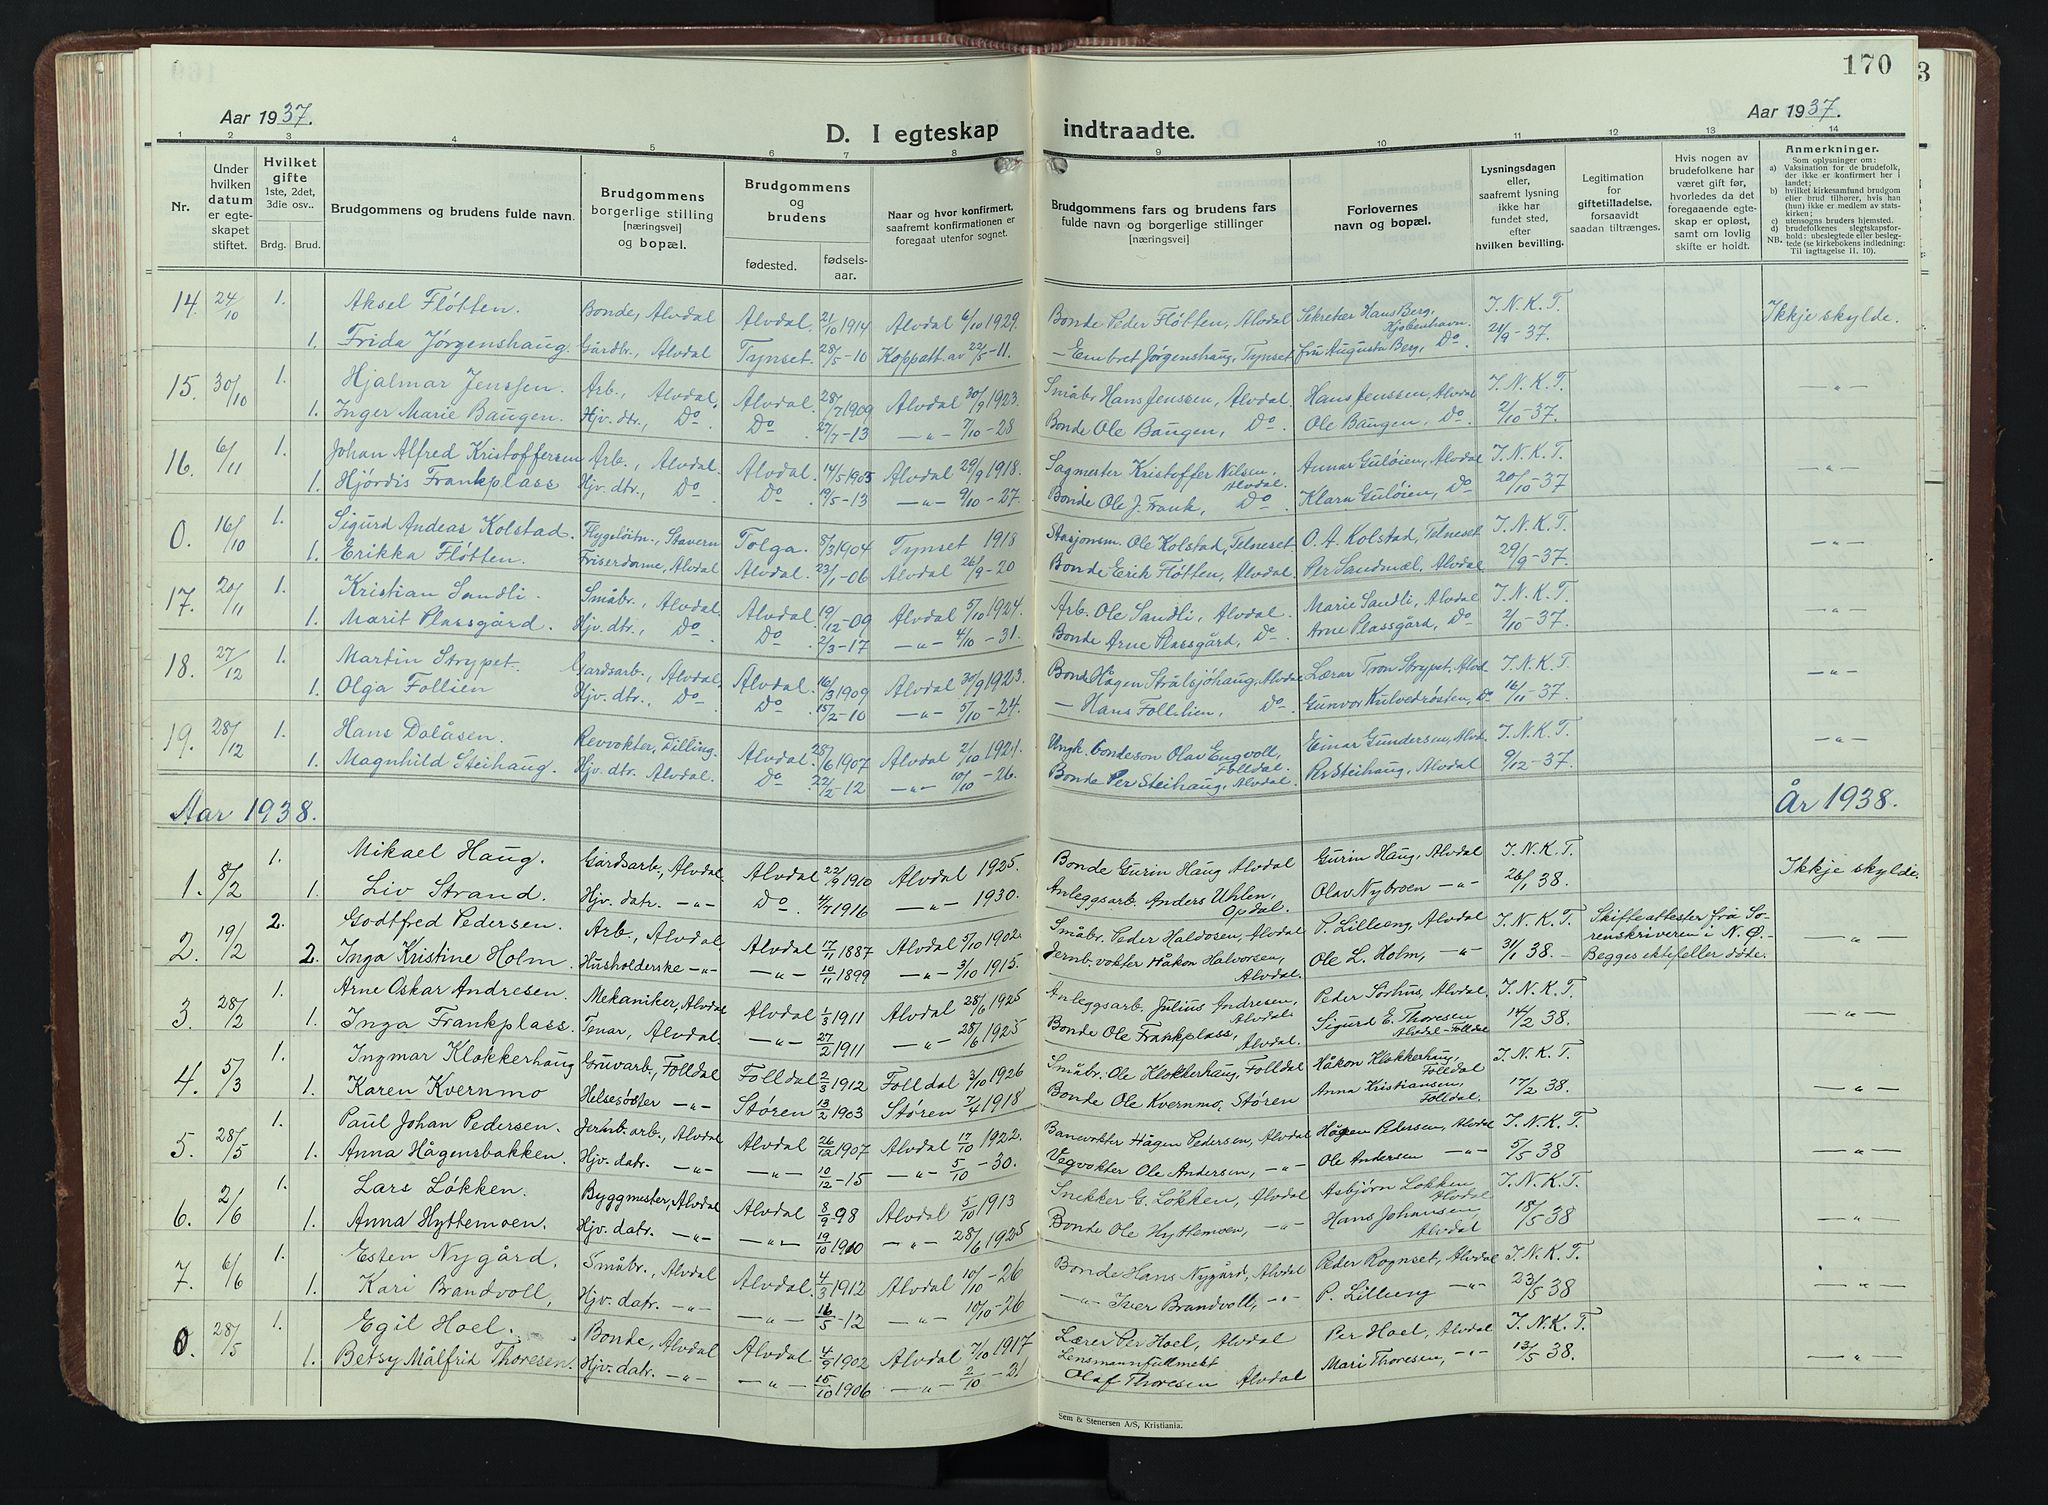 170
3
Aar 1937.
D. I egteskap indtraadte.
Aar 1937.
1 2 3 4 5 6 7 8 9 10 11 12 13 14
Nr.
Under hvilken datum er egteskapet stiftet.
Hvilket gifte 1ste, 2det, 3die osv..
Brdg. Brud.
Brudgommens og brudens fulde navn.
Brudgommens borgerlige stilling [næringsvei] og bopæl.
Brudgommens og brudens
fødested.
fødselsaar.
Naar og hvor konfirmert, saafremt konfirmationen er foregaat utenfor sognet.
Brudgommens fars og brudens fars fulde navn og borgerlige stillinger [næringsvei]
Forlovernes navn og bopæl.
Lysningsdagen eller, saafremt lysning ikke har fundet sted, efter hvilken bevilling.
Legitimation for giftetilladelse, forsaavidt saadan tiltrænges.
Hvis nogen av brudefolkene har været gift før, hvorledes da det foregaaende egteskap er opløst, samt om lovlig skifte er holdt.
Anmerkninger.
Som oplysning om:
a) Vaksination for de brudefolk, der ikke er konfirmert her i landet;
b) hvilket kirkesamfund brudgom eller brud tilhører, hvis han (hun) ikke er medlem av statskirken;
c) utensogns bruders hjemsted.
d) brudefolkenes slegtskapsforhold: ubeslegtede eller beslegtede (se kirkebokens indledning: Til iagttagelse II. 10).
NB.
14. 24/10 1. Aksel Fløtten. Bonde, Alvdal Alvdal. 21/10 1914 Alvdal 6/10 1929. Bonde Peder Fløtten, Alvdal Sekretær Hans Berg, Kjøbenhavn. I. N. K. T. Ikkje skylde.
1. Frida Jørgenshaug. Gardbr., Alvdal Tynset 28/5-10 Koppatt. av 22/5-11. — Embret Jørgenshaug, Tynset fru Augusta Berg, Do. 21/9-37.
15. 30/10 1. Hjalmar Jenssen. Arb., Alvdal. Alvdal. 28/7 1909 Alvdal 30/9 1923. Småbr Hans Jenssen, Alvdal Hans Jenssen, Alvdal I. N. K. T. —"—
1. Inger Marie Baugen. Hjv. dtr., Do. Do 27/7-13 —"— 7/10-28 Bonde Ole Baugen, Do. Ole Baugen, Do. 2/10-37.
16. 6/11 1. Johan Alfred Kristoffersen Arb., Alvdal. Alvdal. 14/5 1903 Alvdal 29/9 1918. Sagmester Kristoffer Nilsen, Alvdal. Annar Guløien, Alvdal I. N. K. T. —"—
1. Hjördis Frankplass Hjv. dtr., Do Do. 19/5-13 —"— 9/10-27. Bonde Ole J. Frank, Do Klara Guløien, Do 20/10-37
0. 16/10 1. Sigurd Andeas Kolstad. Flygeløitn., Stavern Tolga. 8/3 1904 Tynset 1918 Stasjonsm. Ole Kolstad, Telneset. O. A. Kolstad, Telneset I. N. K. T. —"—
1. Erikka Fløtten. Friserdame, Alvdal Alvdal. 23/1-06 Alvdal 26/9-20 Bonde Erik Fløtten, Alvdal. Per Sandmæl, Alvdal 29/9-37.
17. 20/11 1. Kristian Sandli. Småbr., Alvdal Alvdal 19/12-09 Alvdal 5/10 1924. Arb. Ole Sandli, Alvdal. Marie Sandli, Alvdal I. N. K. T. —"—
1. Marit Plassgård. Hjv. dtr., Do. Do. 2/3-17 —"— 4/10-31. Bonde Arne Plassgård, Do. Arne Plassgård, Do 2/10-37.
18. 27/12 1. Martin Strypet. Gardsarb., Alvdal. Alvdal. 16/3 1909 Alvdal 30/9 1923 Bonde Hågen Strålsjöhaug, Alvdal Lærar Tron Strypet, Alvd. I. N. K. T. —"—
1. Olga Follien Hjv. dtr., Do Do. 15/2-10 —"— 5/10-24. — Hans Follien, Do. Gunvor Kulvedrøsten, Do 16/11-37.
19. 28/12 1. Hans Dalåsen. Revvokter, Dilling. Alvdal. 28/6 1907 Alvdal 2/10 1921. Ungk. bondeson Olav Engvoll, Folldal. Einar Gundersen, Alvd. I. N. K. T. —"—
1. Magnhild Steihaug. Hjv. dtr. Alvdal. Do 22/2-12 —"— 10/10-26. Bonde Per Steihaug, Alvdal. Per Steihaug, Alvdal 9/12-37.
Aar 1938. År 1938.
1. 8/2 1. Mikael Haug. Gårdsarb., Alvdal. Alvdal 22/9 1910 Alvdal 1925. Bonde Gurin Haug Alvdal Gurin Haug, Alvdal I. N. K. T. Ikkje skylde.
1. Liv Strand. Hjv. datr. —"— Do. 4/7 1916 —"— 1930. Anleggsarb. Anders Uhlen, Opdal. Olav Nybroen —"— 26/1 38.
2. 19/2 2. Godtfred Pedersen. Arb., Alvdal Alvdal 17/11 1887 Alvdal 5/10 1902. Småbr. Peder Haldosen, Alvdal P. Lilleeng, Alvdal I. N. K. T. Skifteattester frå Sorenskriveren i N. Ø.- —"—
2. Inga Kristine Holm. Husholderske —"— —"— 10/11 1899 —"— 3/10 1915. Jernb. vokter Håkon Halvorsen, Alvdal. Ole L. Holm, —"— 31/1 38. Begges ektefeller døde.
3. 28/2 1. Arne Oskar Andresen. Mekaniker, Alvdal Alvdal 1/3 1911 Alvdal 28/6 1925 Anleggsarb. Julius Andresen, Alvdal. Peder Sørhus, Alvdal. I. N. K. T. —"—
1. Inga Frankplass. Tenar, Alvdal. —"— 27/2 1911 —"— 28/6 1925 Bonde Ole Frankplass, Alvdal. Sigurd E. Thoresen Alvdal-Folldal 14/2 38.
4. 5/3 1. Ingmar Klokkerhaug Gruvarb., Folldal Folldal 2/3 1912 Folldal 3/10 1926 Småbr. Ole Klokkerhaug, Folldal Håkon Klokkerhaug, Folldal I. N. K. T. —"—
1. Karen Kvernmo Helsesøster —"— Støren 13/2 1903 Støren 7/4 1918 Bonde Ole Kvernmo, Støren Anna Kristiansen, Folldal. 17/2 38.
5. 28/5 1. Paul Johan Pedersen. Jernb. arb., Alvdal Alvdal 26/12 1907 Alvdal 17/10 1922. Banevokter Hågen Pedersen, Alvdal Hågen Pedersen, Alvdal I. N. K. T. —"—
1. Anna Hågensbakken. Hjv. datr. —"— —"— 10/12-15 —"— 5/10-30. Vegvokter Ole Andersen, —"— Ole Andersen —"— 5/5 38
6. 2/6 1. Lars Løkken. Byggmester, Alvdal Alvdal 8/9 98 Alvdal 5/10 1913 Snekker G. Løkken, Alvdal Asbjørn Løkken Alvdal I. N. K. T. —"—
1. Anna Hyttemoen. Hjv. datr. —"— —"— 19/10 1900 —"— 28/6 1925 Bonde Ole Hyttemoen, —"— Hans Johansen, Alvdal 18/5 38
7. 6/6 1. Esten Nygård. Småbr., Alvdal Alvdal. 4/3 1912 Alvdal 10/10-26 Bonde Hans Nygård, Alvdal Peder Rognset, Alvdal I. N. K. T. —"—
1. Kari Brandvoll, Hjv. datr. —"— —"— 16/5-12 —"— 10/10-26 —"— Iver Brandvoll, —"— P. Lilleeng —"— 23/5 38
0. 28/5 1. Egil Hoel. Bonde, Alvdal Alvdal 4/9 1902 Alvdal 7/10 1917 Lærer Per Hoel, Alvdal Per Hoel, Alvdal I. N. K. T. —"—
1. Betsy Målfrid Thoresen. Hjv. datr. —"— —"— 15/10 1906 —"— 2/10-21 Lensmannfullmekt Olaf Thoresen Alvdal Mari Thoresen, —"— 13/5 38.
Sem & Stenersen A/S, Kristiania.